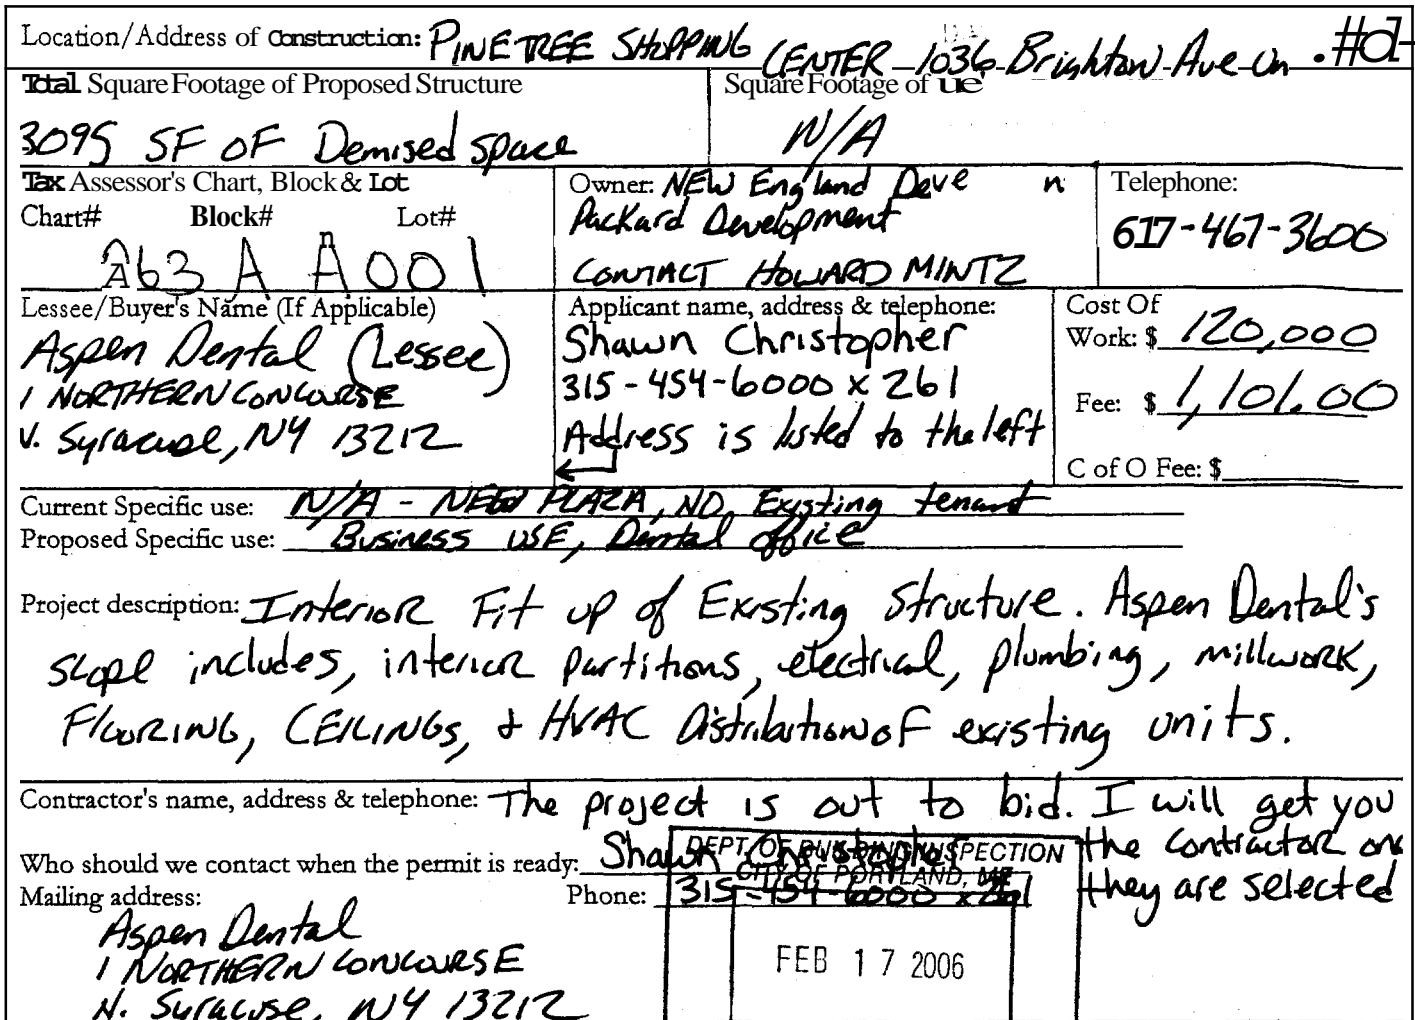 Location/Address of Construction: PINETREE SHOPPING CENTER 1036 Brighton Ave Un . #d
Total Square Footage of Proposed Structure
Square Footage of
3095 SF OF Demised space
N/A
Tax Assessor's Chart, Block & Lot
Chart# Block# Lot#
A63 A A001
Owner: NEW England Deve n
Packard Development
CONTACT HOWARD MINTZ
Telephone:
617-467-3600
Lessee/Buyer's Name (If Applicable)
Aspen Dental (Lessee)
1 NORTHERN CONCOURSE
N. Syracuse, NY 13212
Applicant name, address & telephone:
Shawn Christopher
315-454-6000 x 261
Address is listed to the left
Cost Of
Work: $ 120,000
Fee: $ 1,101.00
C of O Fee: $
Current Specific use: N/A - NEW PLAZA, NO Existing tenant
Proposed Specific use: Business USE, Dental office
Project description: Interior Fit up of Existing Structure. Aspen Dental's
scope includes, interior partitions, electrical, plumbing, millwork,
FLOORING, CEILINGS, & HVAC Distribution of existing units.
Contractor's name, address & telephone: The project is out to bid. I will get you
the contractor on
they are selected
Who should we contact when the permit is ready: Shawn Christopher
Mailing address: Phone: 315-454-6000 x261
Aspen Dental
1 NORTHERN CONCOURSE
N. Syracuse, NY 13212
DEPT. OF BUILDING INSPECTION
CITY OF PORTLAND, ME
FEB 17 2006